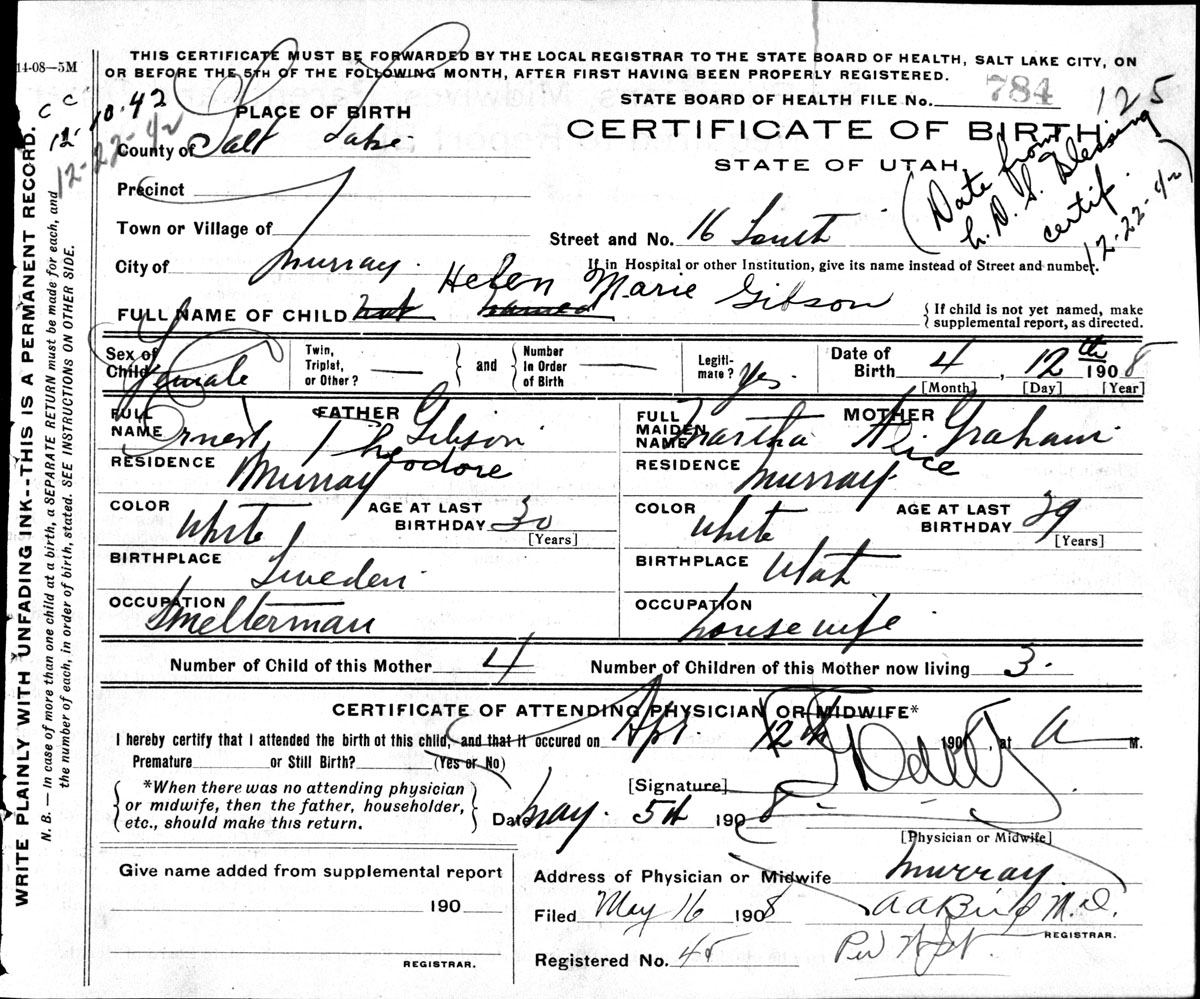 14-08—5M
THIS CERTIFICATE MUST BE FORWARDED BY THE LOCAL REGISTRAR TO THE STATE BOARD OF HEALTH, SALT LAKE CITY, ON
OR BEFORE THE 5TH OF THE FOLLOWING MONTH, AFTER FIRST HAVING BEEN PROPERLY REGISTERED.
CC
12-10-42
12-22-42
STATE BOARD OF HEALTH FILE No. 784
125
PLACE OF BIRTH
CERTIFICATE OF BIRTH
STATE OF UTAH
(Date from
L. D. S. Blessing
certif.
12-22-42)
County of Salt Lake
Precinct
Town or Village of
Street and No. 16 South
City of Murray.
If in Hospital or other Institution, give its name instead of Street and number.
Helen Marie Gibson
FULL NAME OF CHILD not named
{ If child is not yet named, make
supplemental report, as directed.
Sex of Child Female
Twin, Triplet, or Other? —
and
Number In Order of Birth —
Legiti- mate? Yes.
Date of Birth 4, 12th 1908
[Month] [Day] [Year]
FATHER
FULL NAME Ernest Theodore Gibson
RESIDENCE Murray
COLOR White
AGE AT LAST BIRTHDAY 30
[Years]
BIRTHPLACE Sweden.
OCCUPATION Smelterman
MOTHER
FULL MAIDEN NAME Martha Alice Graham
RESIDENCE Murray.
COLOR White
AGE AT LAST BIRTHDAY 29
[Years]
BIRTHPLACE Utah
OCCUPATION housewife
Number of Child of this Mother 4
Number of Children of this Mother now living 3.
CERTIFICATE OF ATTENDING PHYSICIAN OR MIDWIFE*
I hereby certify that I attended the birth of this child, and that it occured on Apr. 12th 1908, at A M.
Premature or Still Birth? (Yes or No)
{ *When there was no attending physician
or midwife, then the father, householder,
etc., should make this return. }
[Signature]
Date May. 5th 1908
[Physician or Midwife]
Give name added from supplemental report
190
REGISTRAR.
Address of Physician or Midwife Murray.
Filed May 16 1908
A A Bird M.D.
REGISTRAR.
Registered No. 45
Per
WRITE PLAINLY WITH UNFADING INK--THIS IS A PERMANENT RECORD.
N. B. — In case of more than one child at a birth, a SEPARATE RETURN must be made for each, and
the number of each, in order of birth, stated. SEE INSTRUCTIONS ON OTHER SIDE.